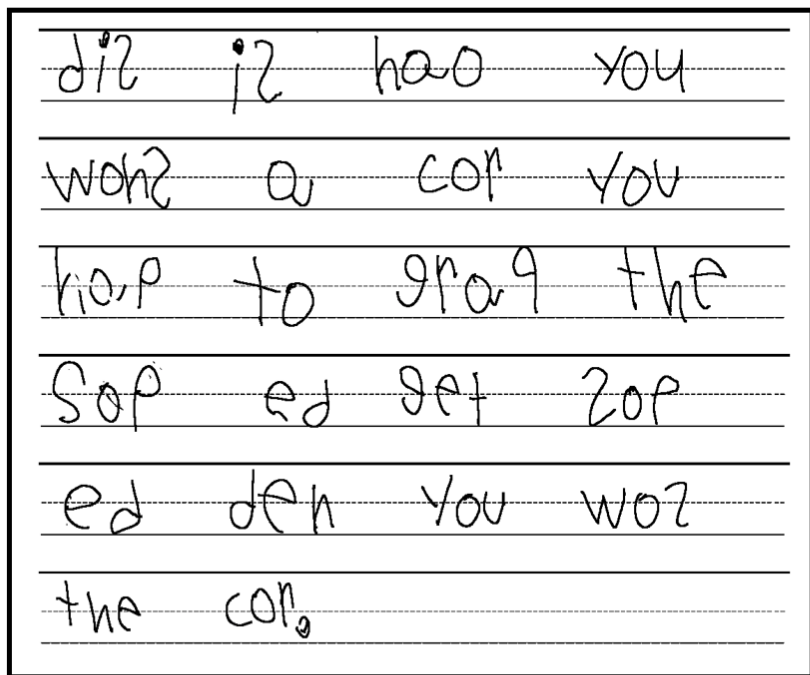 dis is hao you
wohs a cor you
hap to graq the
Sop ed get sop
ed den you wos
the cor.